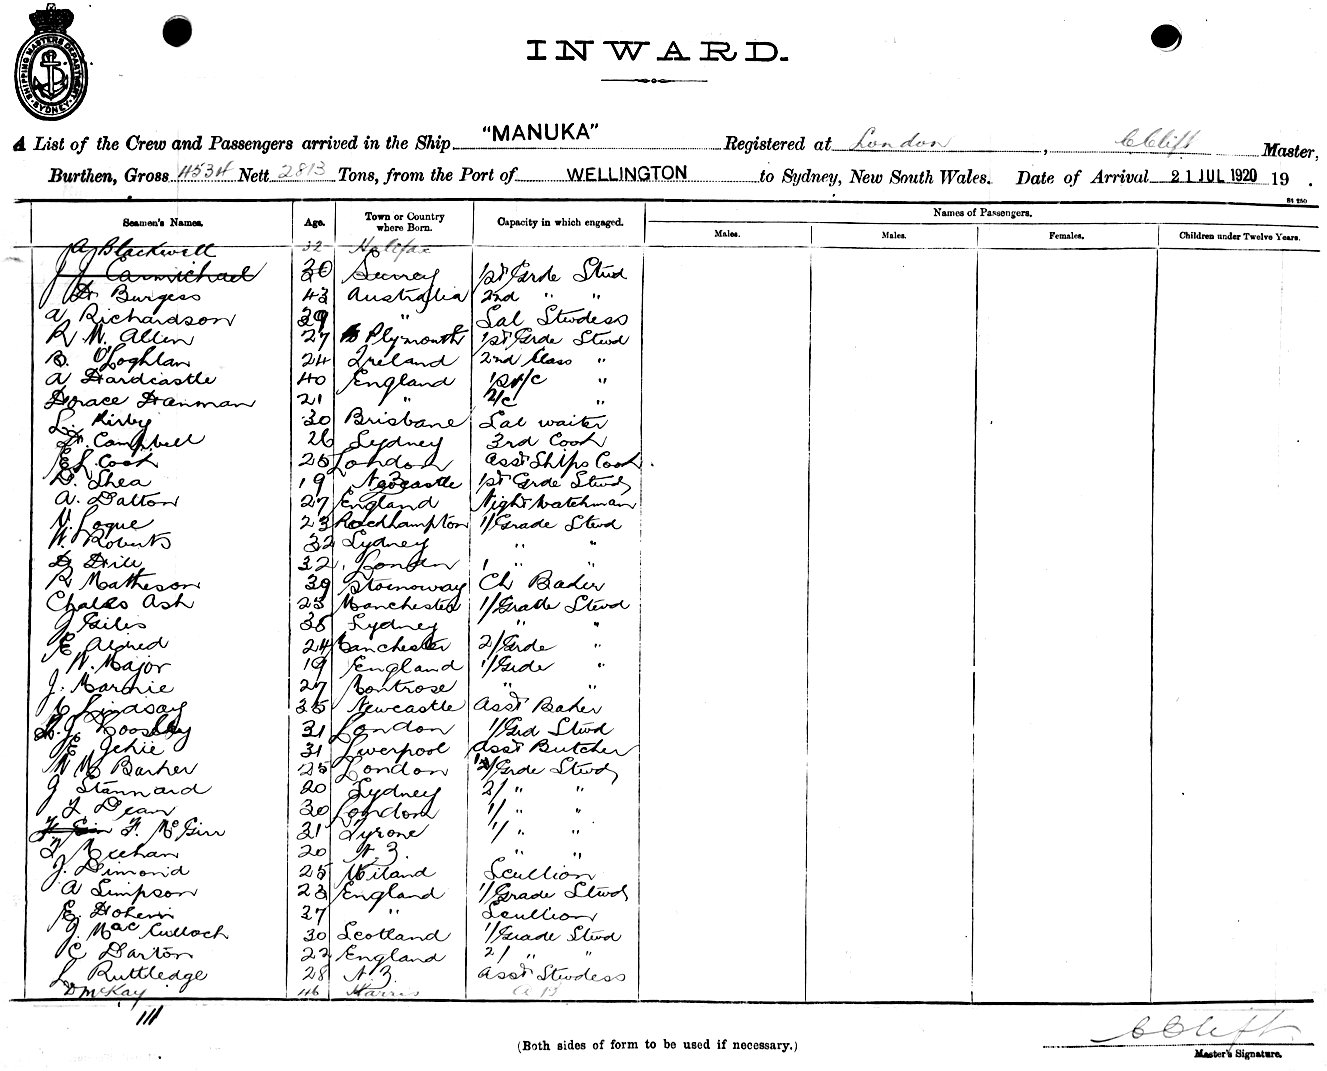 SHIPPING MASTERS DEPARTMENT SYDNEY
INWARD.
A List of the Crew and Passengers arrived in the Ship "MANUKA" Registered at London, C Clift Master,
Burthen, Gross 4534 Nett 2813 Tons, from the Port of WELLINGTON to Sydney, New South Wales. Date of Arrival 21 JUL 1920 19 .
Seamen's Names. Age. Town or Country where Born. Capacity in which engaged. Names of Passengers.
Males. Males. Females. Children under Twelve Years.
A J Blackwell 32 Halifax
J J Carmichael 20 Surrey 1st Grde Stwd
H. Burgess 43 Australia 2nd " "
A Richardson 39 " Sal Stwdess
R W. Allen 27 Plymouth 1st Grde Stwd
B. O'Loghlan 24 Ireland 2nd Class "
A Hardcastle 40 England 1st/c "
Horace Hanman 21 " 2/c "
L. Kirby 30 Brisbane Sal waiter
H. Campbell 26 Sydney 3rd Cook
E L Cook 25 London Asst Ships Cook
D. Shea 19 Newcastle 1st Grde Stwd
A. Dalton 27 England Night Watchman
V. Logue 23 Rockhampton 1/Grade Stwd
W. Roberts 32 Sydney " "
D. Hill 32 London 1 " "
R Matheson 39 Stornoway Ch Baker
Chales Ash 25 Manchester 1/Grade Stwd
J Giles 38 Sydney " "
E Aldred 24 Manchester 2/Grde "
W. Major 19 England 1/Grde "
J. Marnie 27 Montrose " "
C Lindsay 35 Newcastle Asst Baker
J. Loosley 31 London 1/Grd Stwd
E Jehie 31 Liverpool Asst Butcher
W Mc Barker 25 London 2/Grde Stwd
J Stannard 20 Sydney 2/ " "
L Dean 30 London 1/ " "
F. McGirr 31 Tyrone 1/ " "
T Meehan 20 N.Z. " "
J. Dimond 25 Scullion
A Simpson 23 England 1/Grade Stwd
E. 37 " Scullion
J. MacCulloch 30 Scotland 1/Grade Stwd
C Darton 22 England 2/ " "
L Ruttledge 28 N.Z. Asst Stwdess
D McKay 46 Harris A B
C Clift
Master's Signature.
(Both sides of form to be used if necessary.)